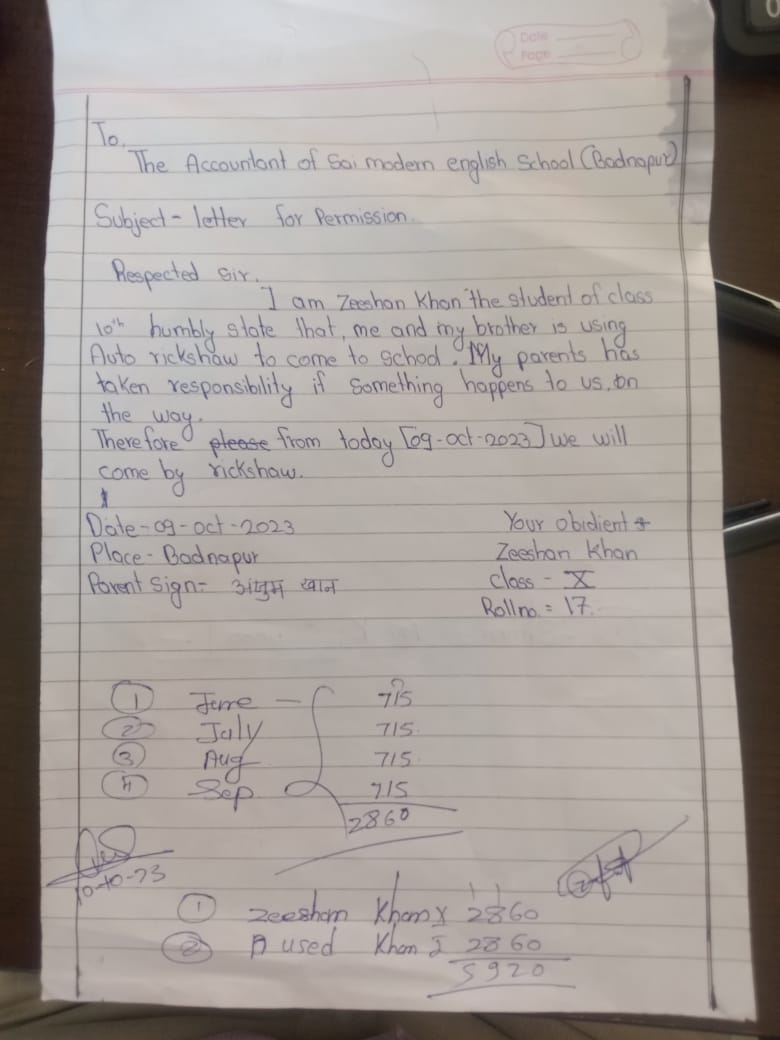 Date
Page
To,
The Accountant of Sai modern english School (Badnapur)
Subject - letter for Permission.
Respected Sir,
I am Zeeshan Khan the student of class
10th humbly state that, me and my brother is using
Auto rickshaw to come to school. My parents has
taken responsibility if something happens to us, on
the way.
Therefore please from today [09-oct-2023] we will
come by rickshaw.
Date - 09-oct-2023
Your obidient
Place - Badnapur
Zeeshan Khan
Parent Sign = अंजुम खान
class - X
Roll no. = 17.
1 June - 715
2 July 715.
3 Aug 715.
4 Sep 715
2860
10-10-23
1 Zeeshan Khan X 2860
2 Khan I 2860
5920